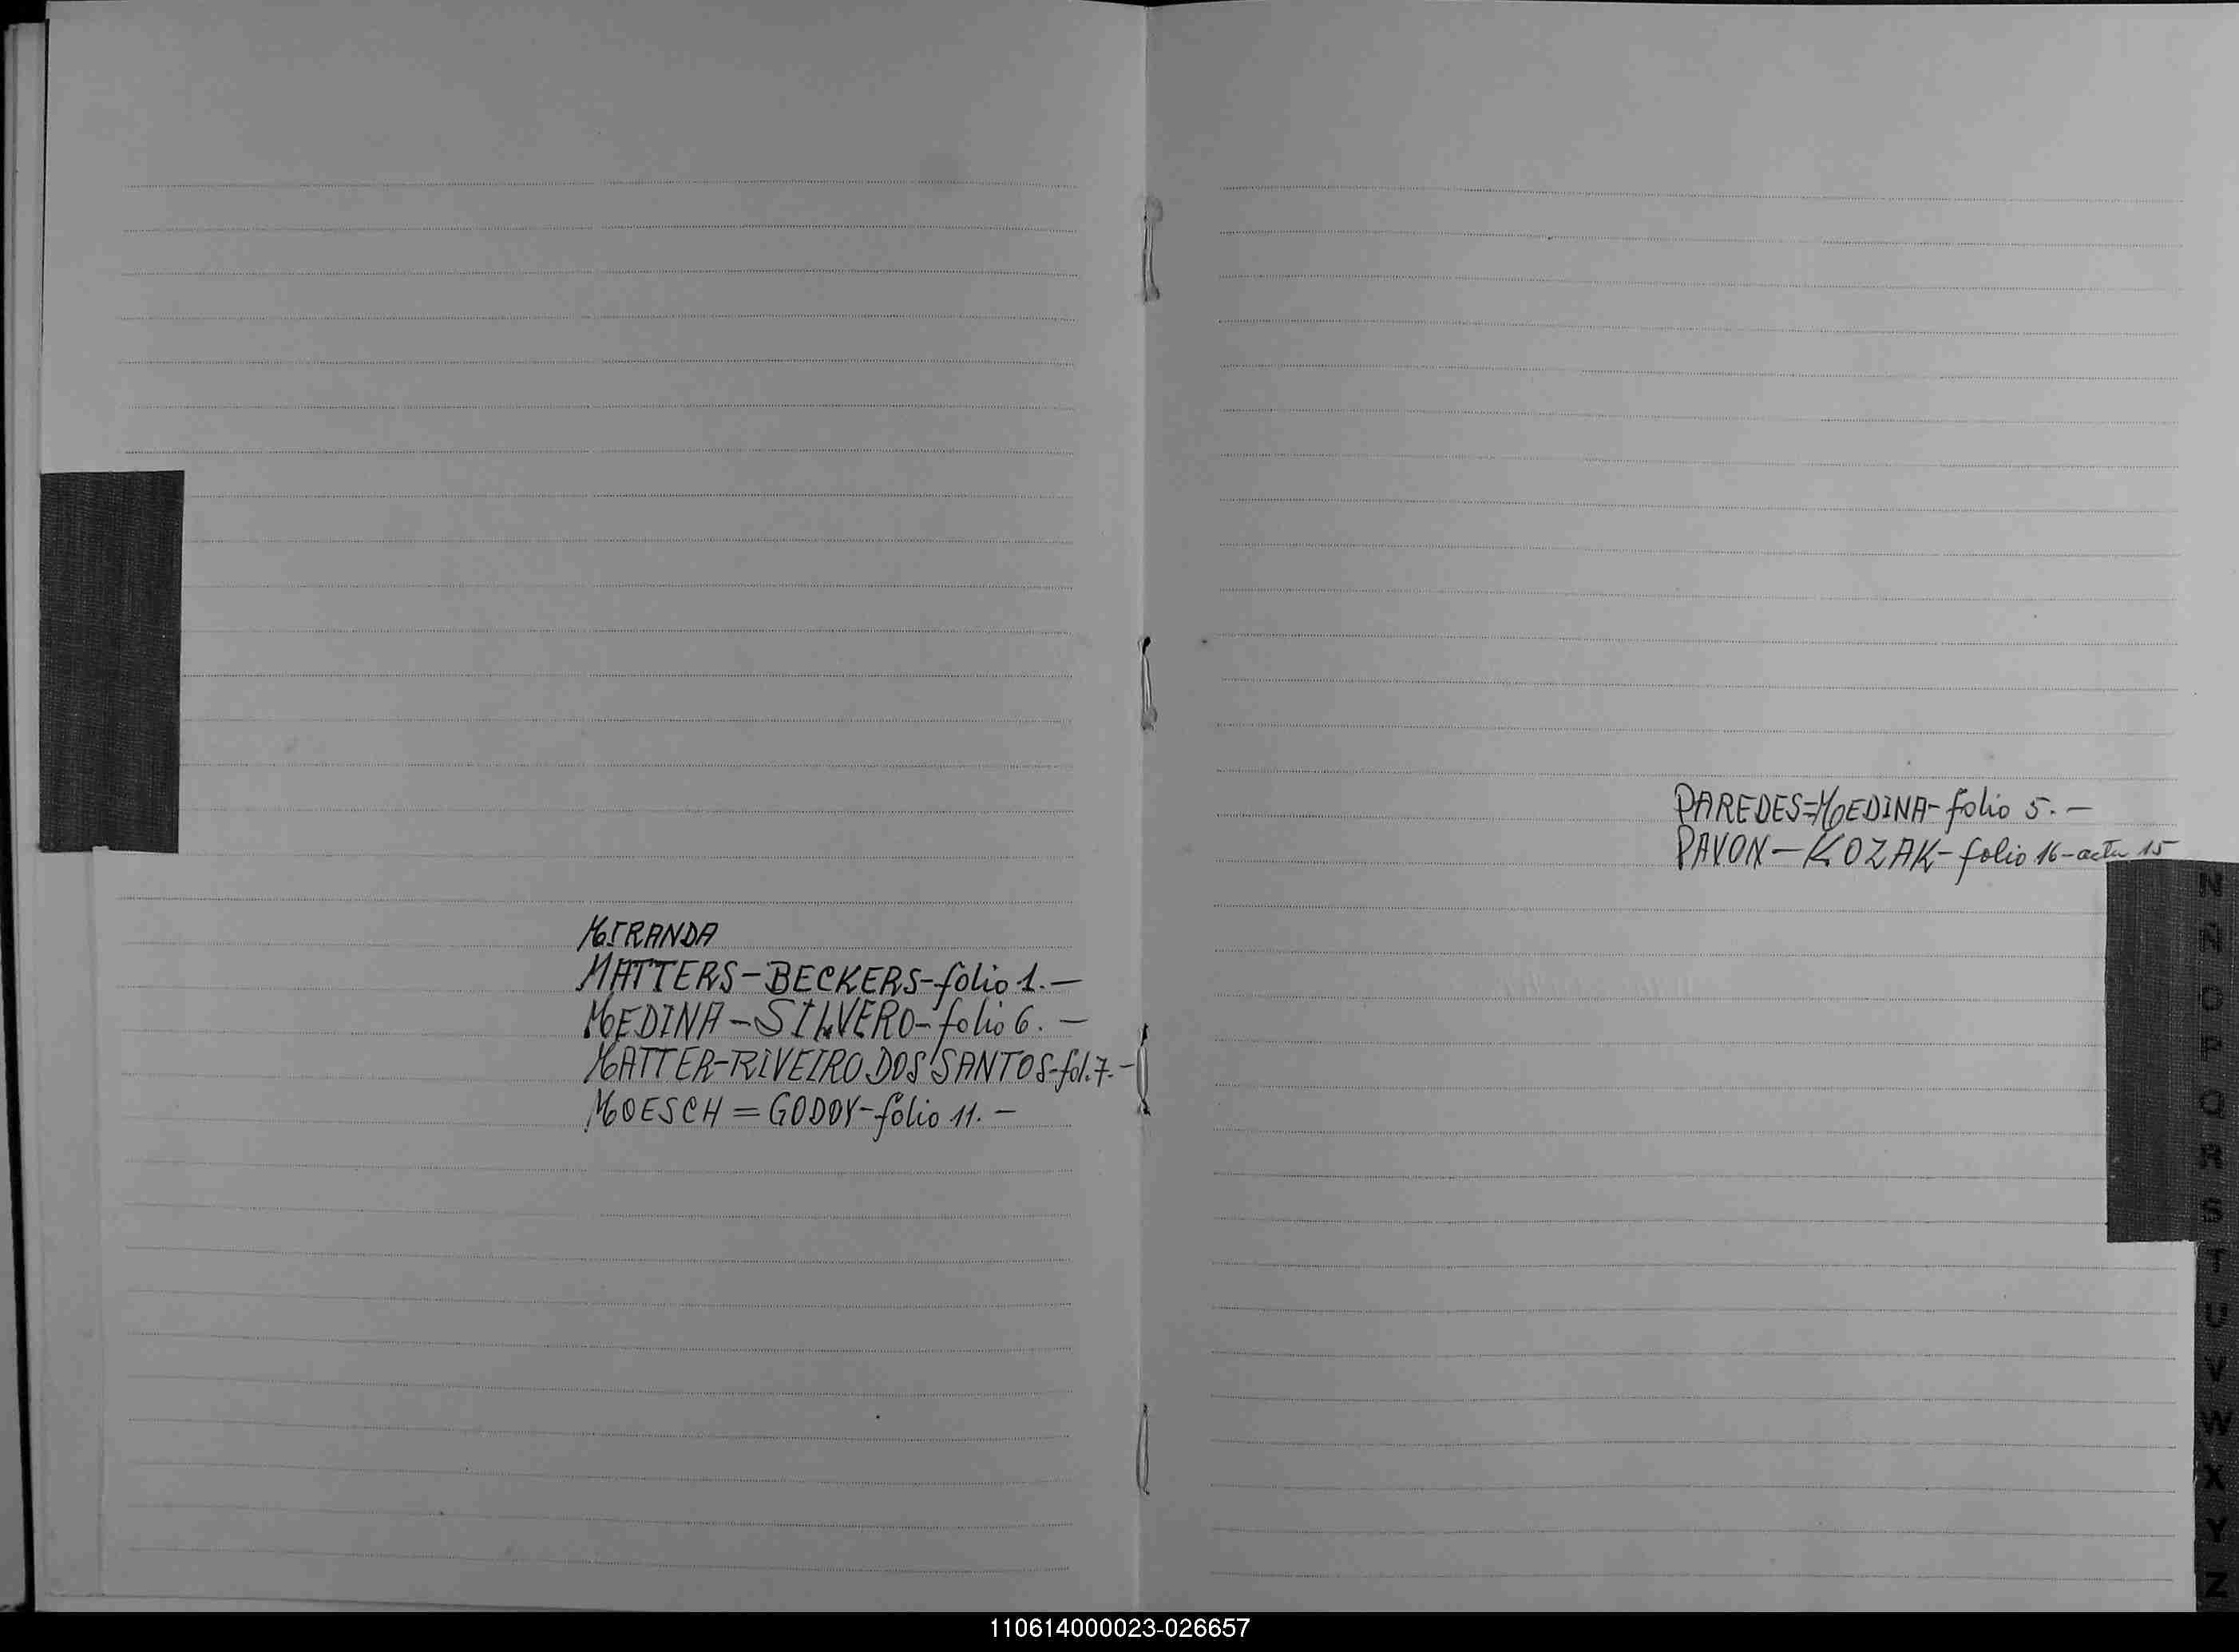 MIRANDA
MATTERS-BECKERS-folio 1.—
MEDINA-SILVERO-folio 6.—
MATTER-RIVEIRO DOS SANTOS-fol.7.-
MOESCH=GODOY-folio 11.—
PAREDES=MEDINA-folio 5.—
PAVON-KOZAK-folio 16-acta 15
N
Ñ
O
P
Q
R
S
T
U
V
W
X
Y
Z
110614000023-026657